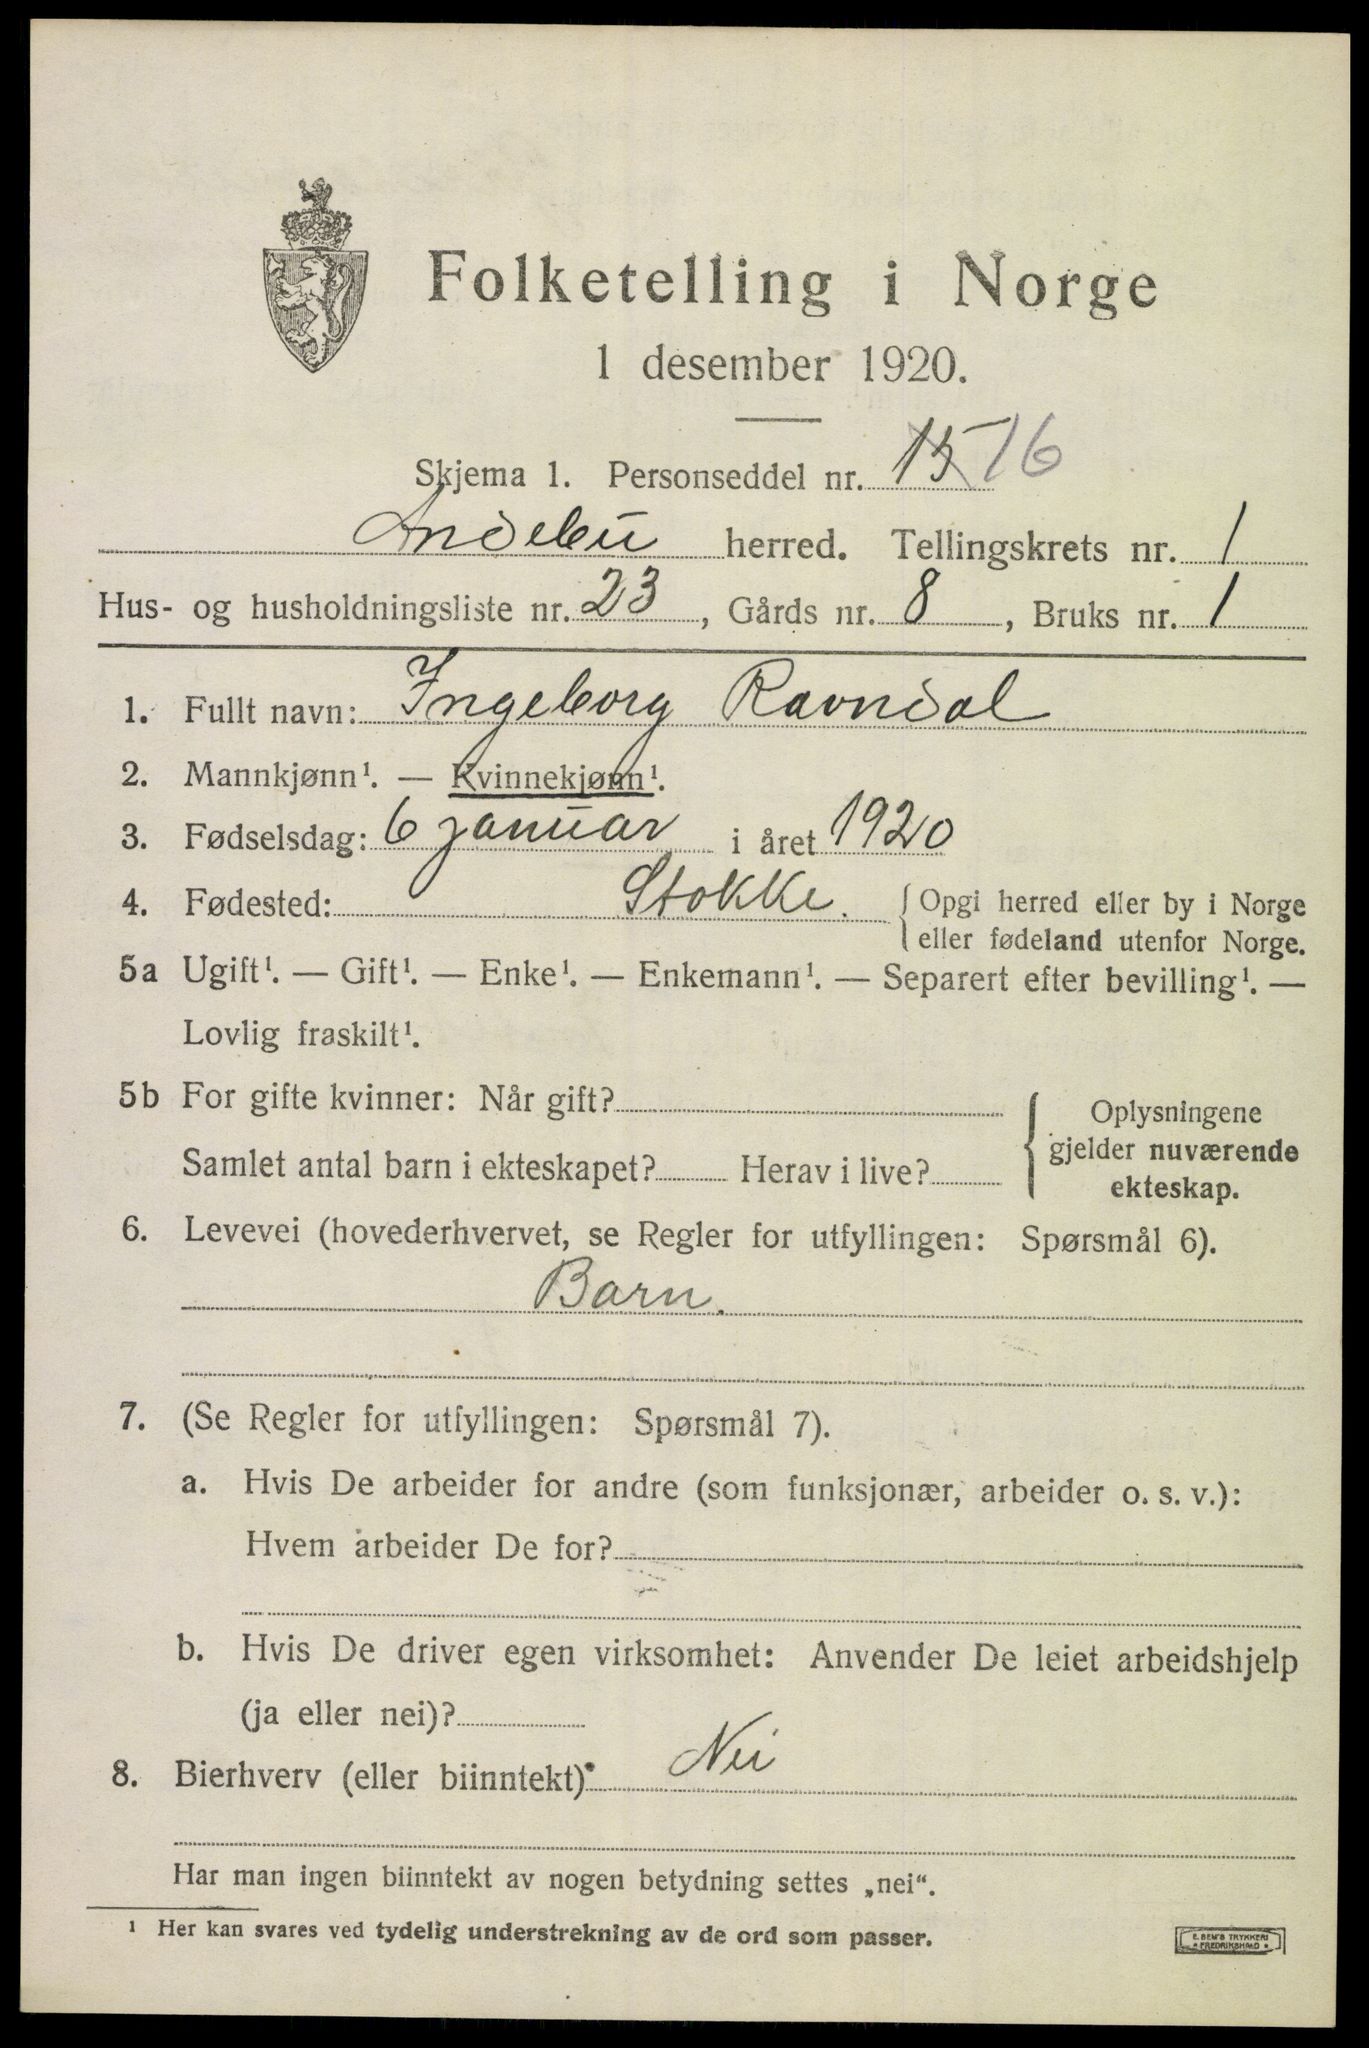 Folketelling i Norge
1 desember 1920.
Skjema 1. Personseddel nr. 15 16
Andebu herred. Tellingskrets nr. 1
Hus- og husholdningsliste nr. 23, Gårds nr. 8, Bruks nr. 1
1. Fullt navn: Ingeborg Ravndal
2. Mannkjønn¹. — Kvinnekjønn¹.
3. Fødselsdag: 6 januar i året 1920
4. Fødested: Stokke. { Opgi herred eller by i Norge
eller fødeland utenfor Norge.
5a Ugift¹. — Gift¹. — Enke¹. — Enkemann¹. — Separert efter bevilling¹. —
Lovlig fraskilt¹.
5b For gifte kvinner: Når gift?
Samlet antal barn i ekteskapet? Herav i live?
{ Oplysningene
gjelder nuværende
ekteskap.
6. Levevei (hovederhvervet, se Regler for utfyllingen: Spørsmål 6).
Barn.
7. (Se Regler for utfyllingen: Spørsmål 7).
a. Hvis De arbeider for andre (som funksjonær, arbeider o. s. v.):
Hvem arbeider De for?
b. Hvis De driver egen virksomhet: Anvender De leiet arbeidshjelp
(ja eller nei)?
8. Bierhverv (eller biinntekt) Nei
Har man ingen biinntekt av nogen betydning settes „nei“.
¹ Her kan svares ved tydelig understrekning av de ord som passer.
E. SEM'S TRYKKERI
* FREDRIKSHALD *